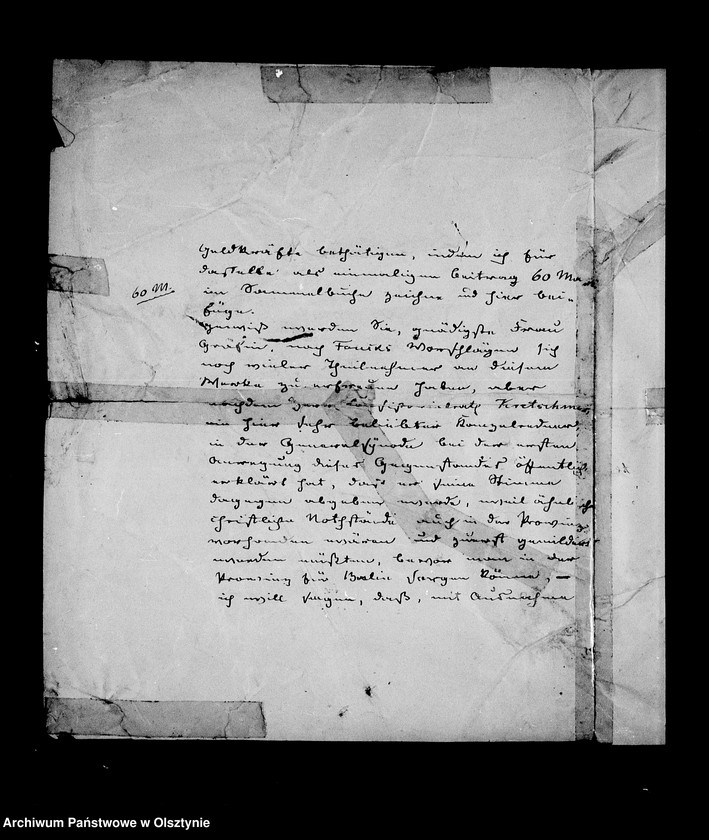 Geldkräfte bethätigen, indem ich für
dasselbe als einmaligen Beitrag 60 Mark
60 M.
im Sammelbuche zeichne und hier bei-
füge.
Gewiß werden Sie, gnädigste Frau
Gräfin, nach Vorschlägen sich
noch vieler Theilnehmer an diesem
Werke zu erfreuen haben, aber
nachdem Herr Consistorialrath Kretschmer,
ein hier sehr beliebter Kanzelredner,
in der Generalsynode bei der ersten
Anregung dieses Gegenstandes öffentlich
erklärt hat, daß er seine Stimme
dagegen abgeben werde, weil ähnliche
christliche Nothstände auch in der Provinz
vorhanden wären und zuerst gemildert
werden müßten, bevor man in der
Provinz für Berlin sorgen könne, —
ich will sagen, daß, mit Ausnahme
Archiwum Państwowe w Olsztynie